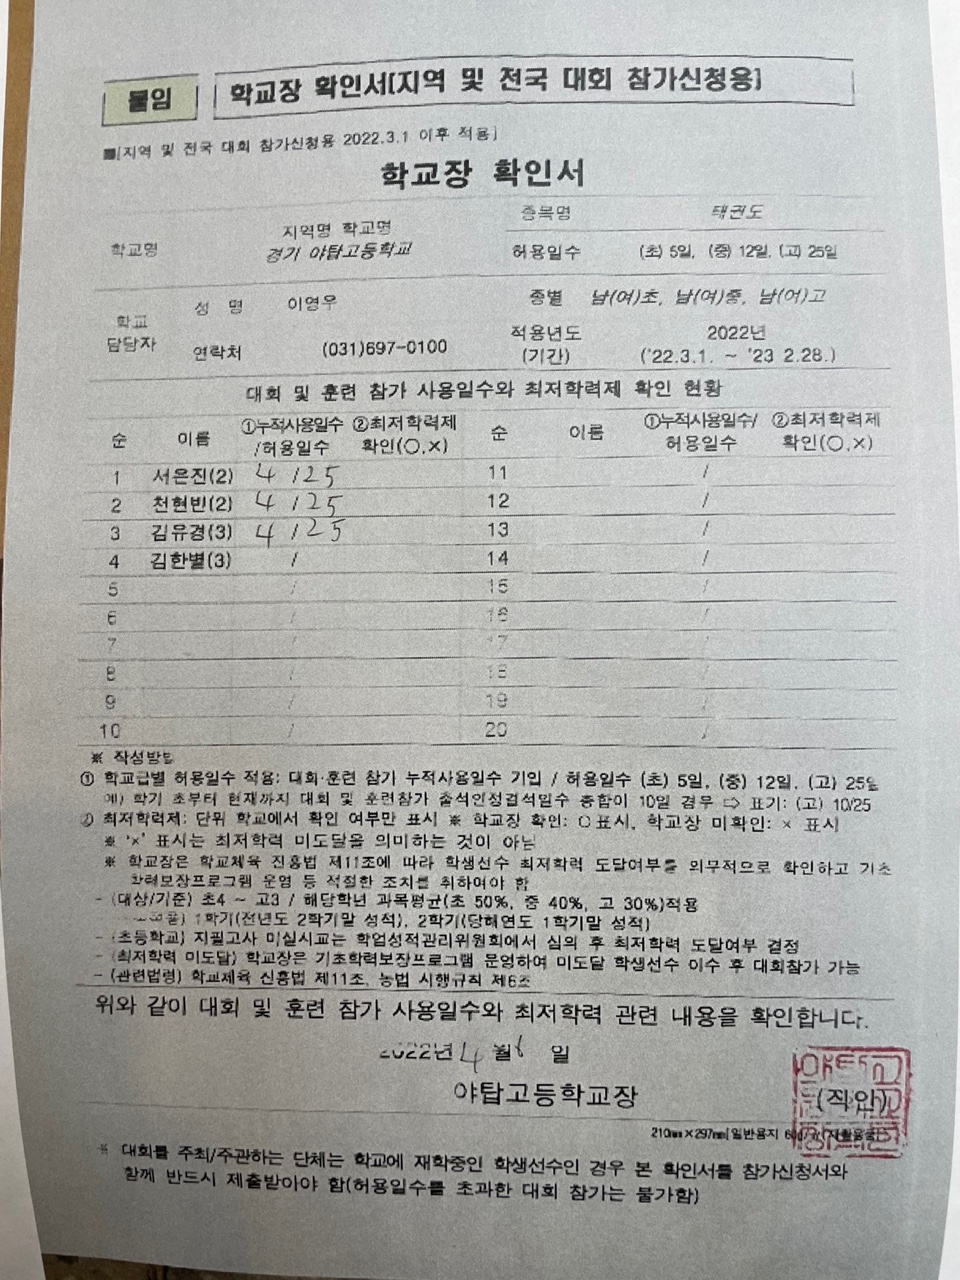 붙임
학교장 확인서[지역 및 전국 대회 참가신청용]
■[지역 및 전국 대회 참가신청용 2022.3.1 이후 적용]
학교장 확인서
학교명 지역명 학교명 경기 야탑고등학교 종목명 태권도
허용일수 (초) 5일, (중) 12일, (고) 25일
학교 담당자 성 명 이영우 종별 남(여)초, 남(여)중, 남(여)고
연락처 (031)697-0100 적용년도 (기간) 2022년 ('22.3.1. ~ '23 2.28.)
대회 및 훈련 참가 사용일수와 최저학력제 확인 현황
순 이름 ①누적사용일수/허용일수 ②최저학력제 확인(○,×) 순 이름 ①누적사용일수/허용일수 ②최저학력제 확인(○,×)
1 서은진(2) 4 / 25 11 /
2 천현빈(2) 4 / 25 12 /
3 김유경(3) 4 / 25 13 /
4 김한별(3) / 14 /
5 / 15 /
6 / 16 /
7 / 17 /
8 / 18 /
9 / 19 /
10 / 20 /
※ 작성방법
① 학교급별 허용일수 적용: 대회·훈련 참가 누적사용일수 기입 / 허용일수 (초) 5일, (중) 12일, (고) 25일
예) 학기 초부터 현재까지 대회 및 훈련참가 출석인정결석일수 총합이 10일 경우 ⇨ 표기: (고) 10/25
② 최저학력제: 단위 학교에서 확인 여부만 표시 ※ 학교장 확인: ○표시, 학교장 미확인: × 표시
※ '×' 표시는 최저학력 미도달을 의미하는 것이 아님
※ 학교장은 학교체육 진흥법 제11조에 따라 학생선수 최저학력 도달여부를 의무적으로 확인하고 기초
학력보장프로그램 운영 등 적절한 조치를 취하여야 함
- (대상/기준) 초4 ~ 고3 / 해당학년 과목평균(초 50%, 중 40%, 고 30%)적용
1학기(전년도 2학기말 성적), 2학기(당해연도 1학기말 성적)
- (초등학교) 지필고사 미실시교는 학업성적관리위원회에서 심의 후 최저학력 도달여부 결정
- (최저학력 미도달) 학교장은 기초학력보장프로그램 운영하여 미도달 학생선수 이수 후 대회참가 가능
- (관련법령) 학교체육 진흥법 제11조, 동법 시행규칙 제6조
위와 같이 대회 및 훈련 참가 사용일수와 최저학력 관련 내용을 확인합니다.
2022년 4 월 일
야탑고등학교장 (직인)
210mm×297mm[일반용지
※ 대회를 주최/주관하는 단체는 학교에 재학중인 학생선수인 경우 본 확인서를 참가신청서와
함께 반드시 제출받아야 함(허용일수를 초과한 대회 참가는 불가함)